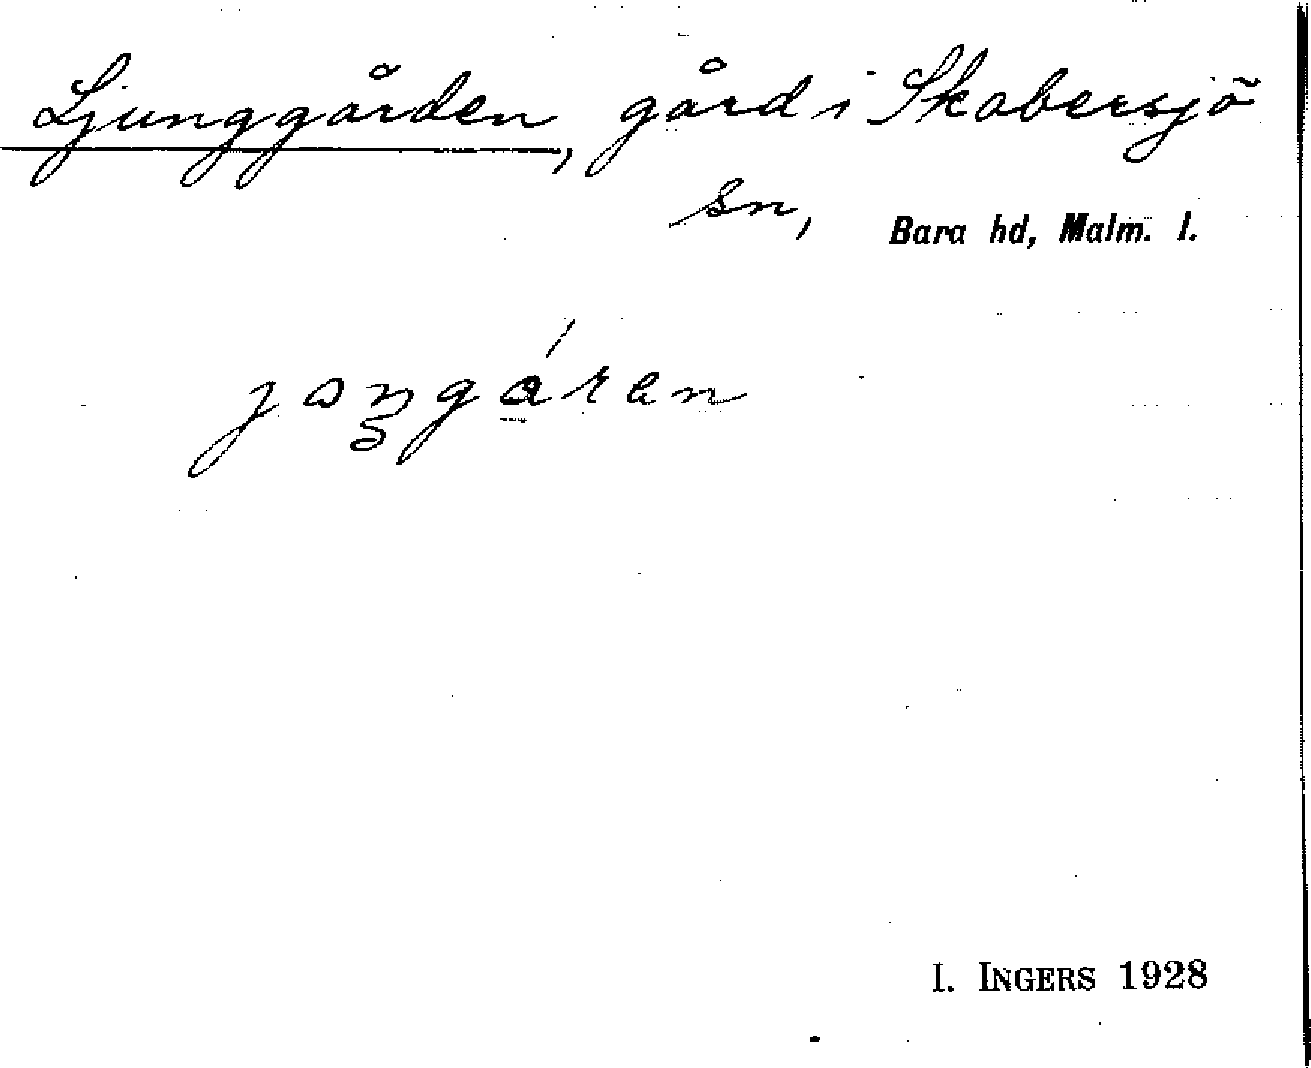 Ljunggården, gård i Skabersjö
sn, Bara hd, Malm. l.
joŋgáren
I. INGERS 1928